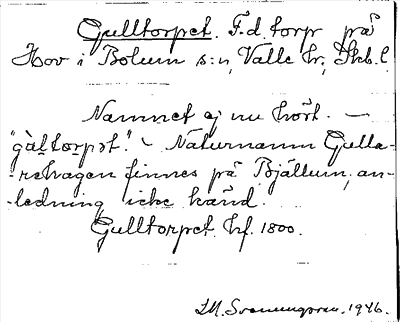 Gulltorpet. F.d. torp på
Hov i Bolum s:n, Valle hr, Skb.l.
Namnet ej nu hört. —
"gàltorpət". — Naturnamn Gulla-
-rehagen finnes på Bjällum, an-
-ledning icke känd.
Gulltorpet hf. 1800.
1946.